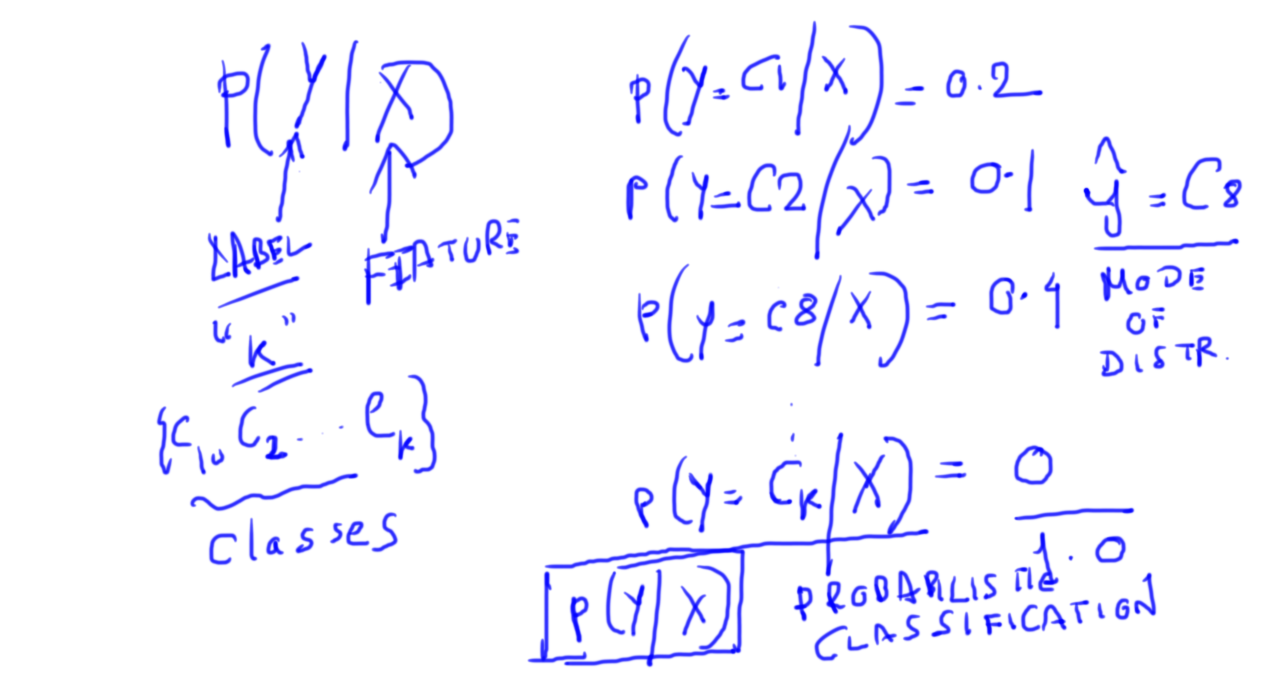 P(Y|X)
LABEL
FEATURE
"K"
{C1, C2 ... Ck}
classes
P(Y=C1/X) = 0.2
P(Y=C2/X) = 0.1
P(Y=C8/X) = 0.4
ŷ = C8
MODE
OF
DISTR.
P(Y=CK/X) = 0
1.0
P(Y/X)
PROBABLISTIC
CLASSIFICATION